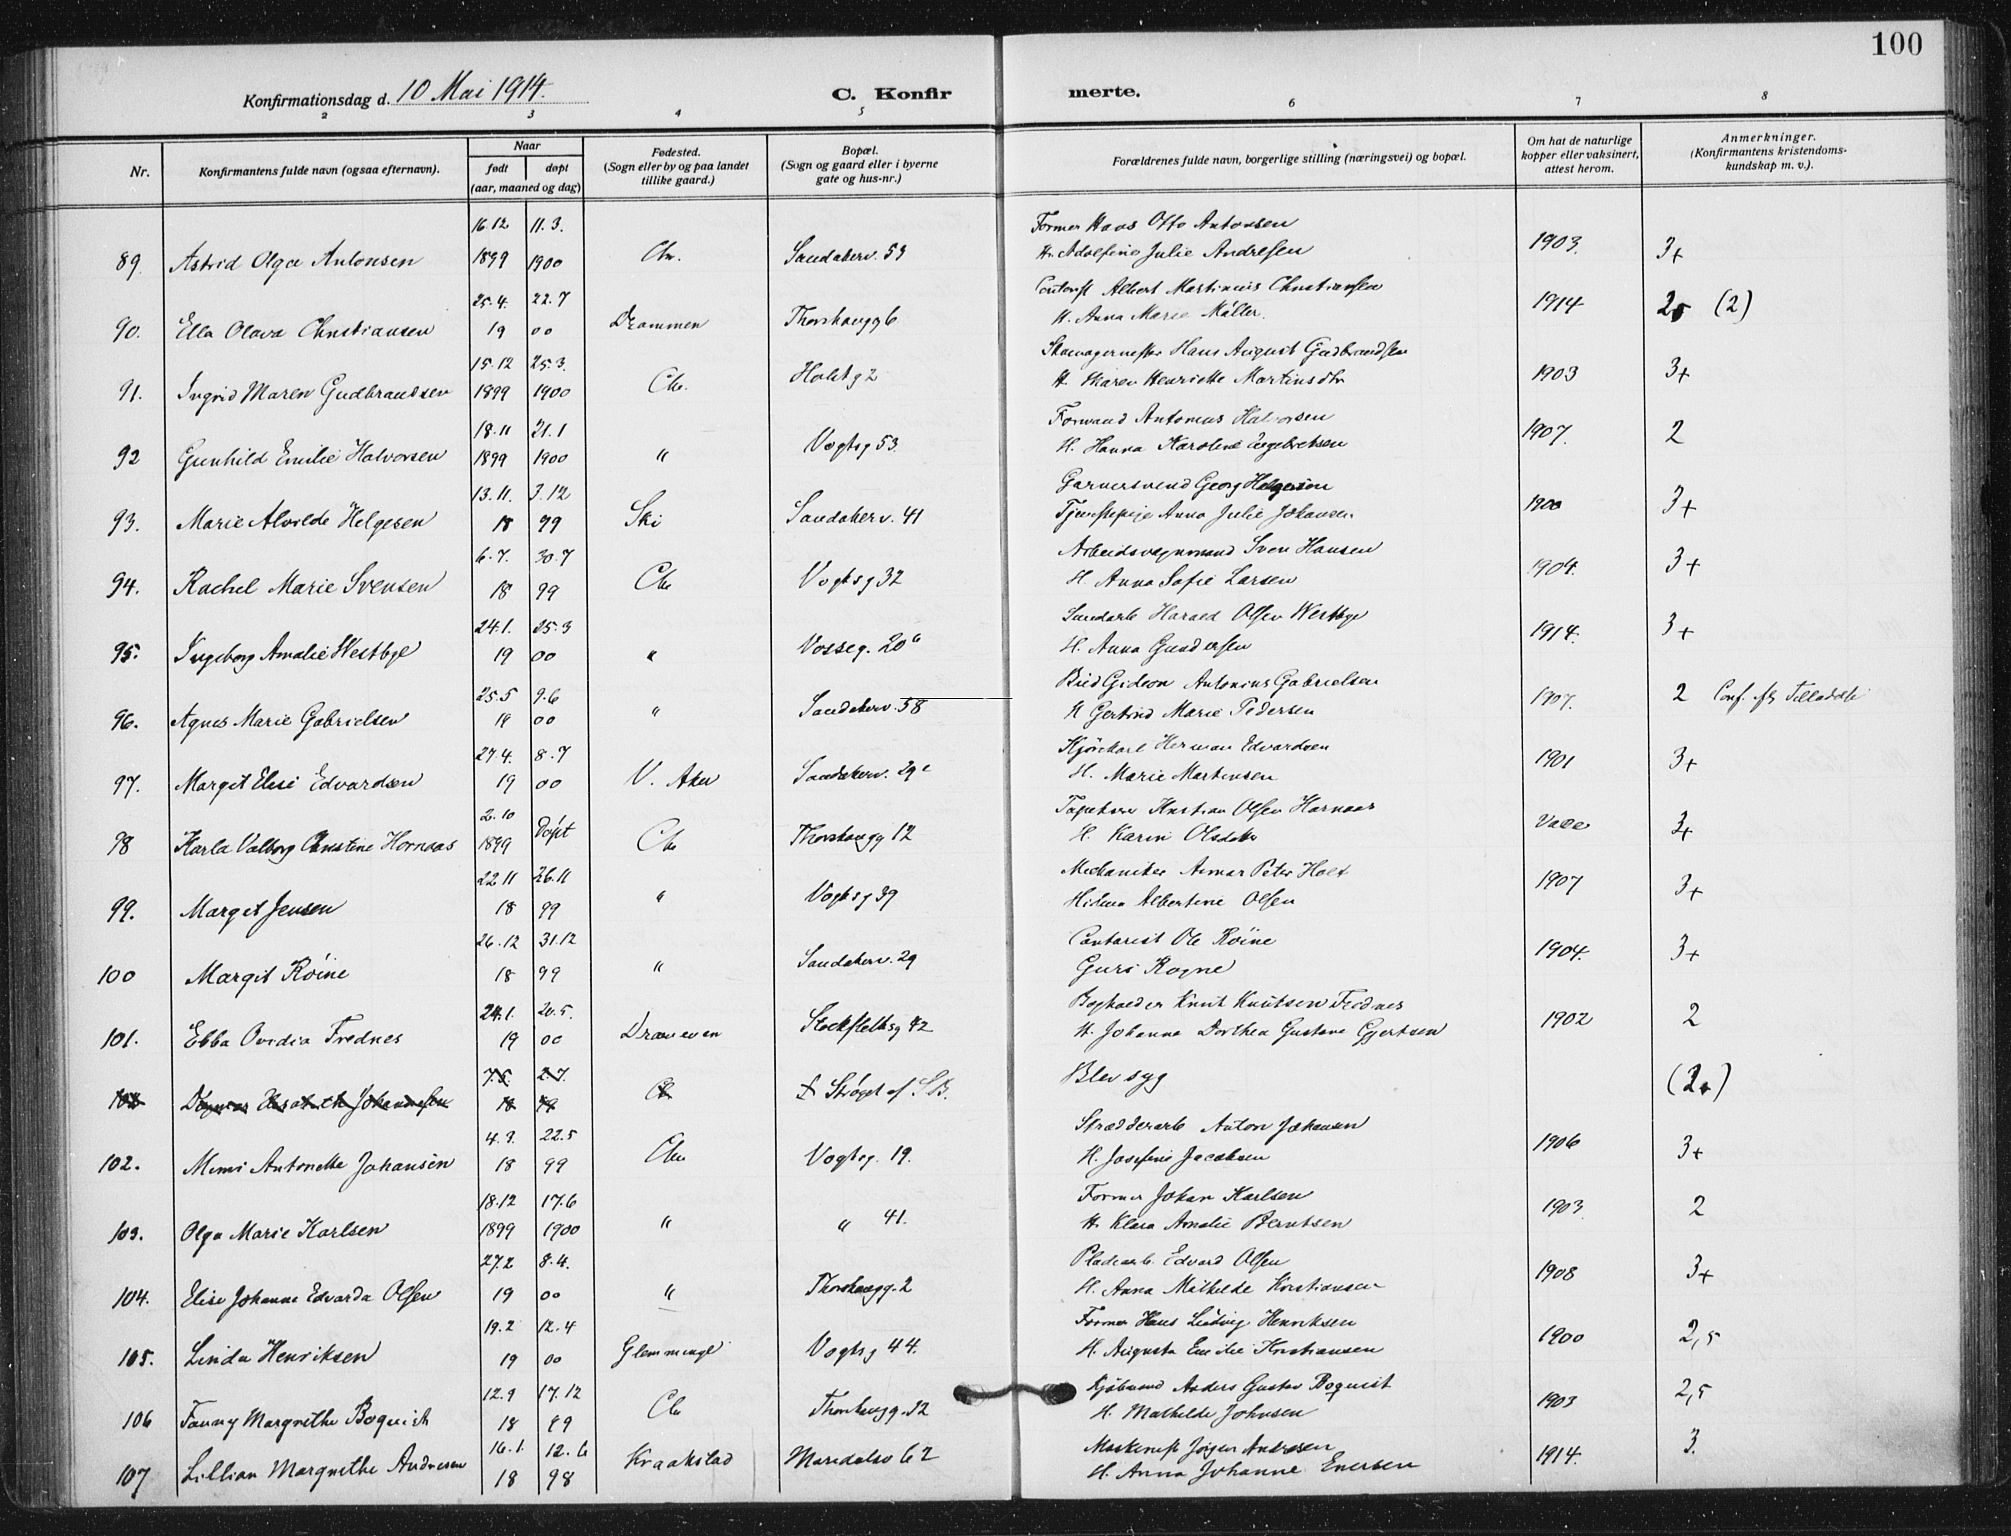 100
Konfirmationsdag d. 10 Mai 1914.
C. Konfirmerte.
2 3 4 5 6 7 8
Nr.
Konfirmantens fulde navn (ogsaa efternavn).
Naar
født døpt
(aar, maaned og dag)
Fødested.
(Sogn eller by og paa landet
tillike gaard.)
Bopæl.
(Sogn og gaard eller i byerne
gate og hus-nr.)
Forældrenes fulde navn, borgerlige stilling (næringsvei) og bopæl.
Om hat de naturlige
kopper eller vaksinert,
attest herom.
Anmerkninger.
(Konfirmantens kristendoms-
kundskap m. v.).
16.12 11.3. Former Hans Otto Antonsen
89. Astrid Olga Antonsen 1899 1900 Chr. Sandakerv. 53 H. Adolfine Julie Andresen 1903. 3+
25.4. 22.7 Albert Martinius Christiansen
90. Ella Olava Christiansen 19 00 Drammen Thorshaugg 6 H. Anna Marie Møller. 1914 25 (2)
15.12 25.3. Skomagermester Hans August Gudbrandsen
91. Ingrid Maren Gudbrandsen 1899 1900 Chr. Holstg 2 H. Maren Henriette Martinsdtr 1903 3+
18.11 21.1 Formand Antonius Halvorsen
92 Gunhild Emilie Halvorsen 1899 1900 " Vogtsg 53. H. Hanna Karoline Engebretsen 1907. 2
13.11. 3.12 Garversvend Georg Helgesen
93. Marie Alvilde Helgesen 18 99 Ski Sandakerv. 41 Tjenestepige Anna Julie Johansen 1900 3+
6.7. 30.7 Arbeidsvognmand Sven Hansen
94. Rachel Marie Svensen 18 99 Chr Vogtsg 32 H. Anna Sofie Larsen 1904. 3+
24.1. 25.3 Harald Olsen Westbye
95. Ingeborg Amalie Westbye 19 00 " Vosseg. 20 H. Anna Gundersen 1914. 3+
25.5 9.6 Bud Gideon Antonius Gabrielsen
96. Agnes Marie Gabrielsen 19 00 " Sandakerv. 58 H Gertrud Marie Pedersen 1907. 2 Conf.
27.4. 8.7 Kjørekarl Herman Edvardsen
97. Margit Elise Edvardsen 19 00 V. Aker Sandakerv. 29 H. Marie Martinsen 1901 3+
2.10 Døpt Kristian Olsen Hornaas
98 Karla Valborg Christine Hornaas 1899 Chr Thorshaugg 12 H. Karen Olsdatter 3+
22.11 26.11 Mekaniker Peter Holt
99. Margit Jensen 18 99 " Vogtsg 39 Albertine Olsen 1907 3+
26.12 31.12 Contorist Ole Røine
100 Margit Røine 18 99 " Sandakerv. 29 Guri Rogne 1904. 3+
24.1. 20.5. Bogholder Knut Knutsen Frednes
101. Ebba Ovidia Frednes 19 00 Drammen Stockflethsg 42 H. Johanna Dorthea Gustava Gjertsen 1902 2
7.5. 2.7. Blev syg
102 Dagmar Elisabeth Johannesen 18 99 Chr Strøget af S.B. (2+)
4.3. 22.5 Anton Johansen
102. Mimi Antonette Johansen 18 99 Chr Vogtsg. 19. H. Josefine Jacobsen 1906 3+
18.12 17.6 Former Johan Karlsen
103. Olga Marie Karlsen 1899 1900 " " 41. H. Klara Amalie Berntsen 1903 2
27.2 8.4. Pladearb. Edvard Olsen
104. Elise Johanne Edvarda Olsen 19 00 " Thorshaugg. 2 H. Anna Mathilde Kristiansen 1908 3+
19.2 12.4 Former Hans Ludvig Henriksen
105. Linda Henriksen 19 00 Glemminge Vogtsg 44. H. Augusta Emilie Kristiansen 1900 2,5
12.9 17.12 Kjøbmand Anders Gustav Boquist
106 Fanny Margrethe Boquist 18 99 Chr Thorshaugg. 12 H. Mathilde Johnsen 1903 2,5
16.1. 12.6 Maskinist Jørgen Andresen
107 Lillian Margrethe Andresen 18 98 Kraakstad Maridalsv 62 H. Anna Johanne Enersen 1914. 3.